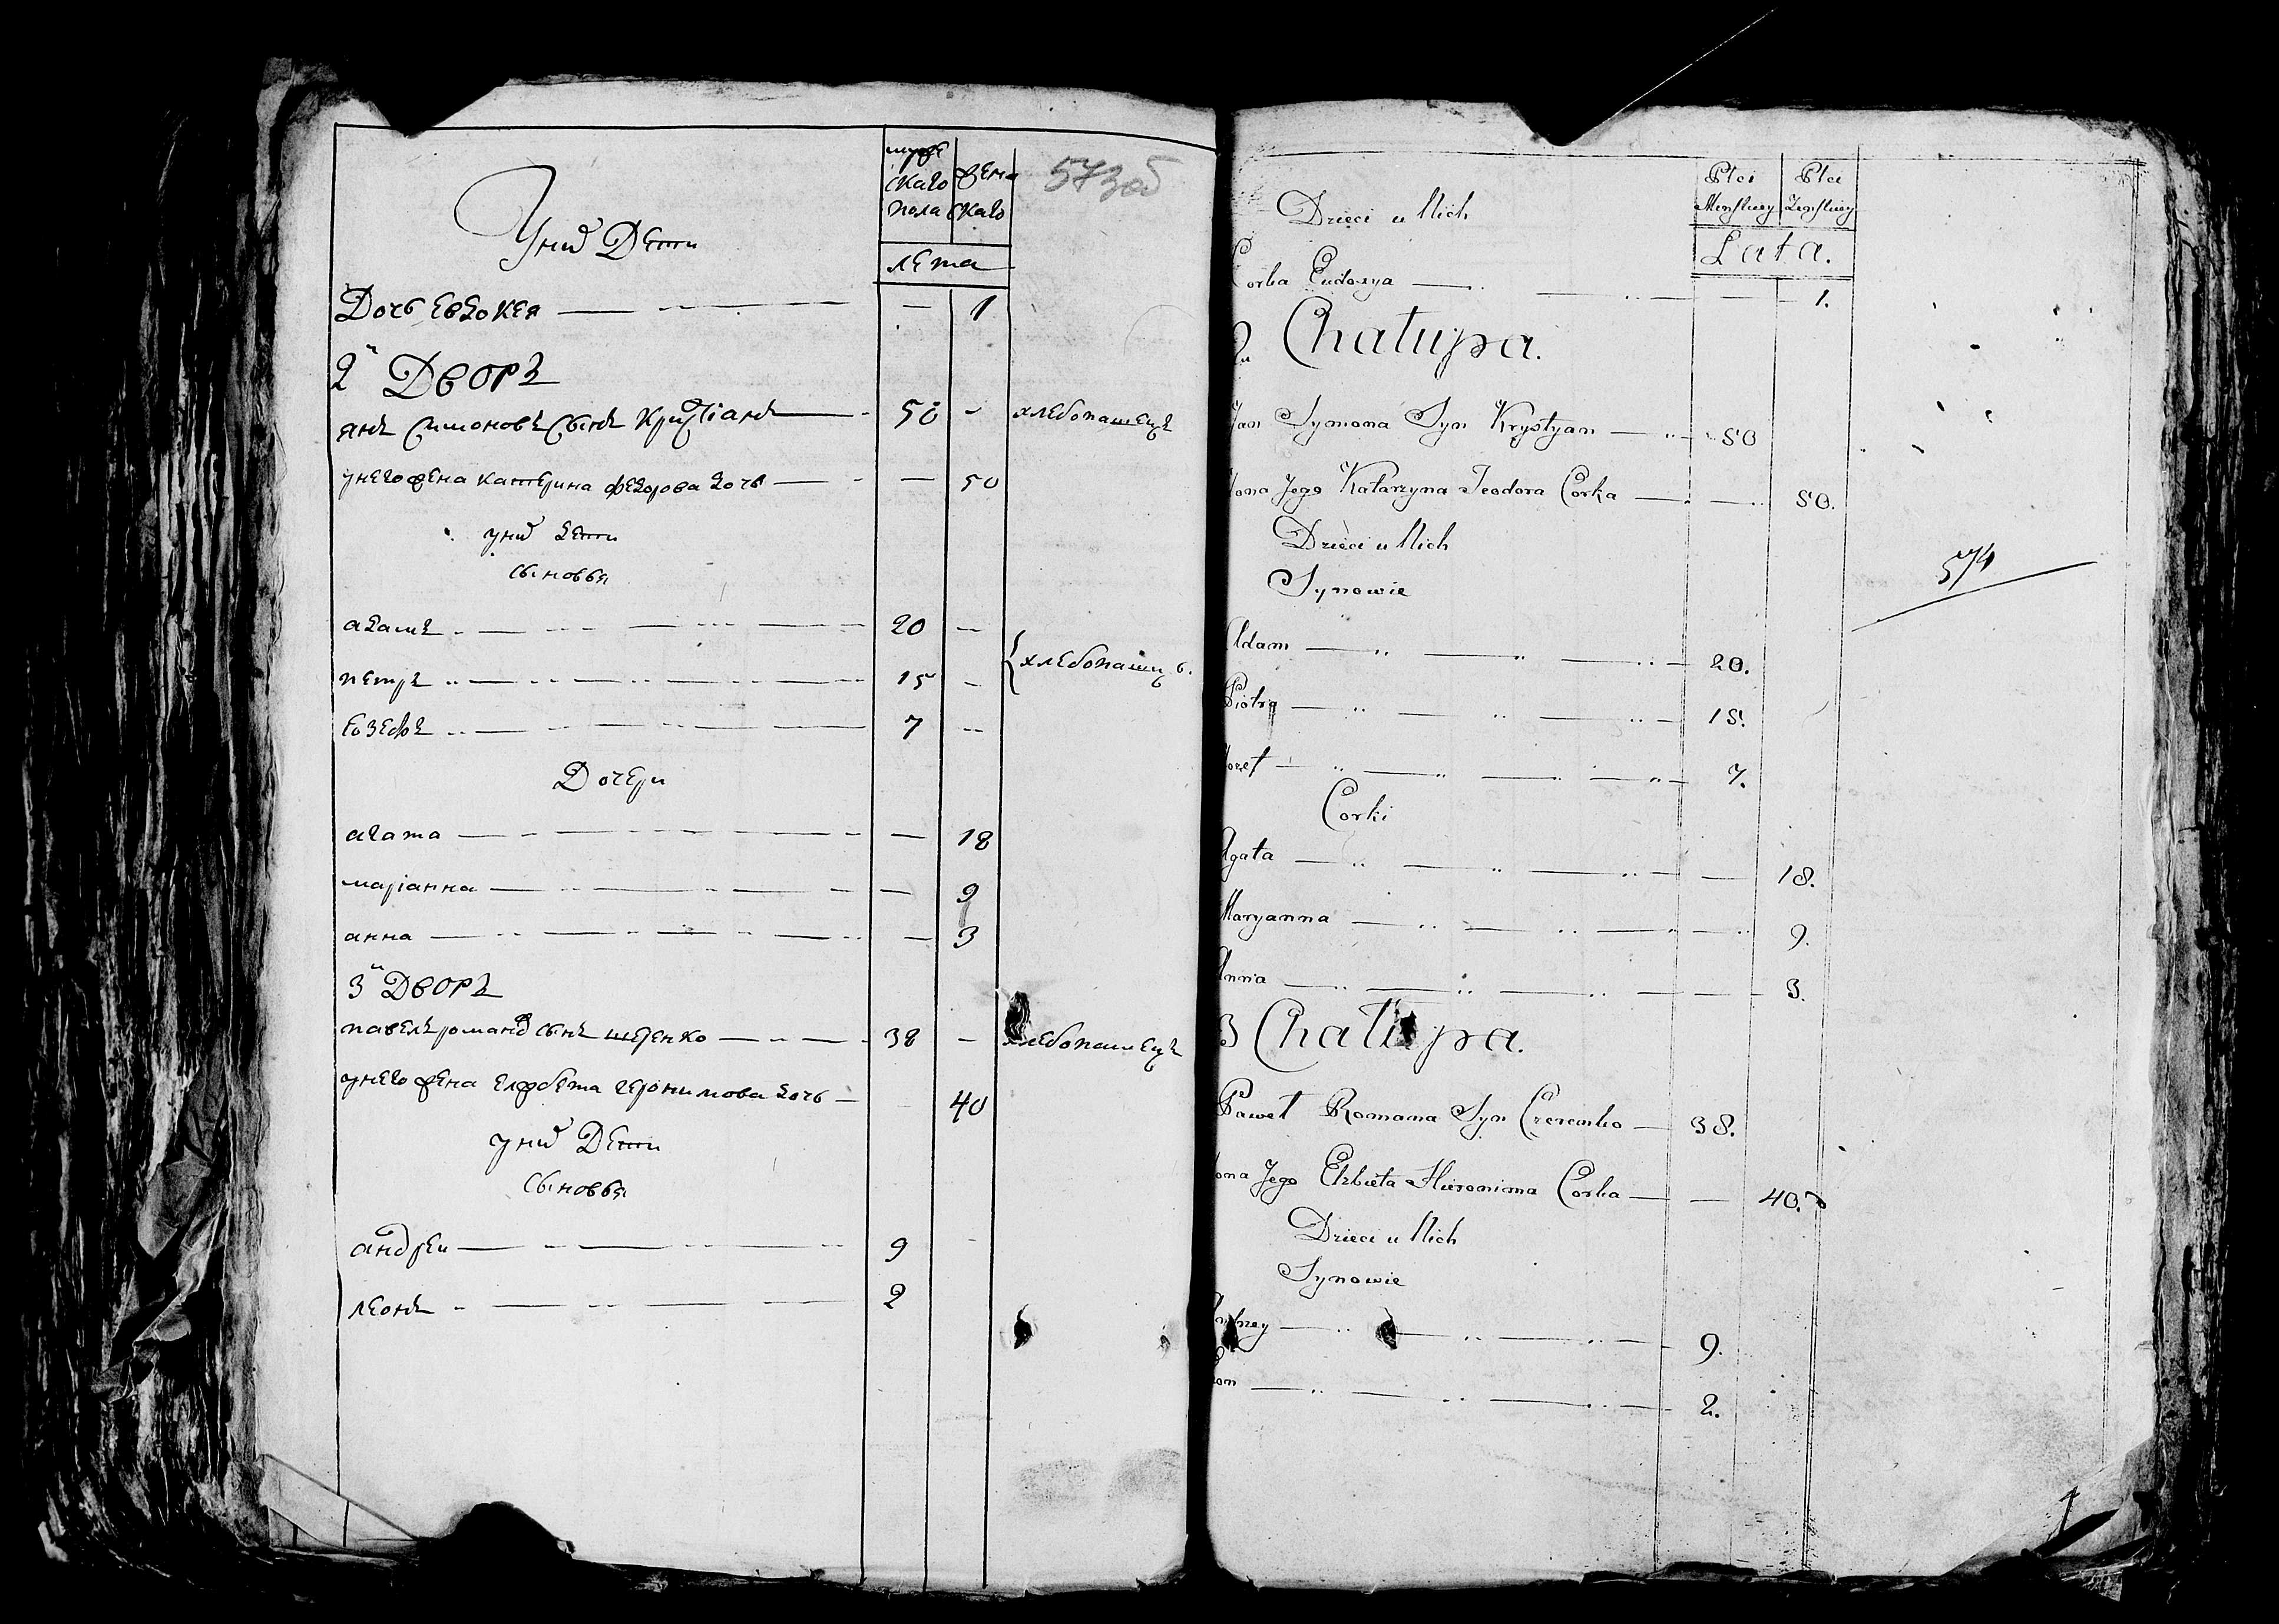 муже
скаго
пола
жен
скаго
лета
573 об
У них Дети
Дочь Евдокея — — 1
2й Дворъ
янъ Симоновъ Сынъ Кристіанъ — 50 - хлебопашецъ
у него жена катерина федорова дочь — — 50
у них дети
сыновья
адамъ — 20 —
петръ — 15 - хлебопашцы
еозефъ — 7 --
Дочери
агата — — 18
маріанна — — 9
анна — — 3
3й Дворъ
павелъ романов сынъ шеренко — 38 - хлебопашецъ
у него жена елжбета геронимова дочь — 40
у них Дети
сыновья
андреи — 9
леонъ — 2
Płci
Męskiey
Płci
Żeńskiey
Lata.
Dzieci u Nich
Corka Eudoxya — — 1.
2a Chałupa.
Jan Symona Syn Krystyan — 50
ona Jego Katarzyna Teodora Corka — — 50.
Dzieci u Nich
Synowie
574
Adam — 20.
Piotrą — 15.
ozef — 7.
Corki
Agata — — 18.
Maryanna — — 9.
Anna — — 3.
3 Chałupa.
Paweł Romana Syn Czerenko — 38.
ona Jego Elzbieta Hieronima Corka — — 40.
Dzieci u Nich
Synowie
Andrzey — 9.
eon — 2.